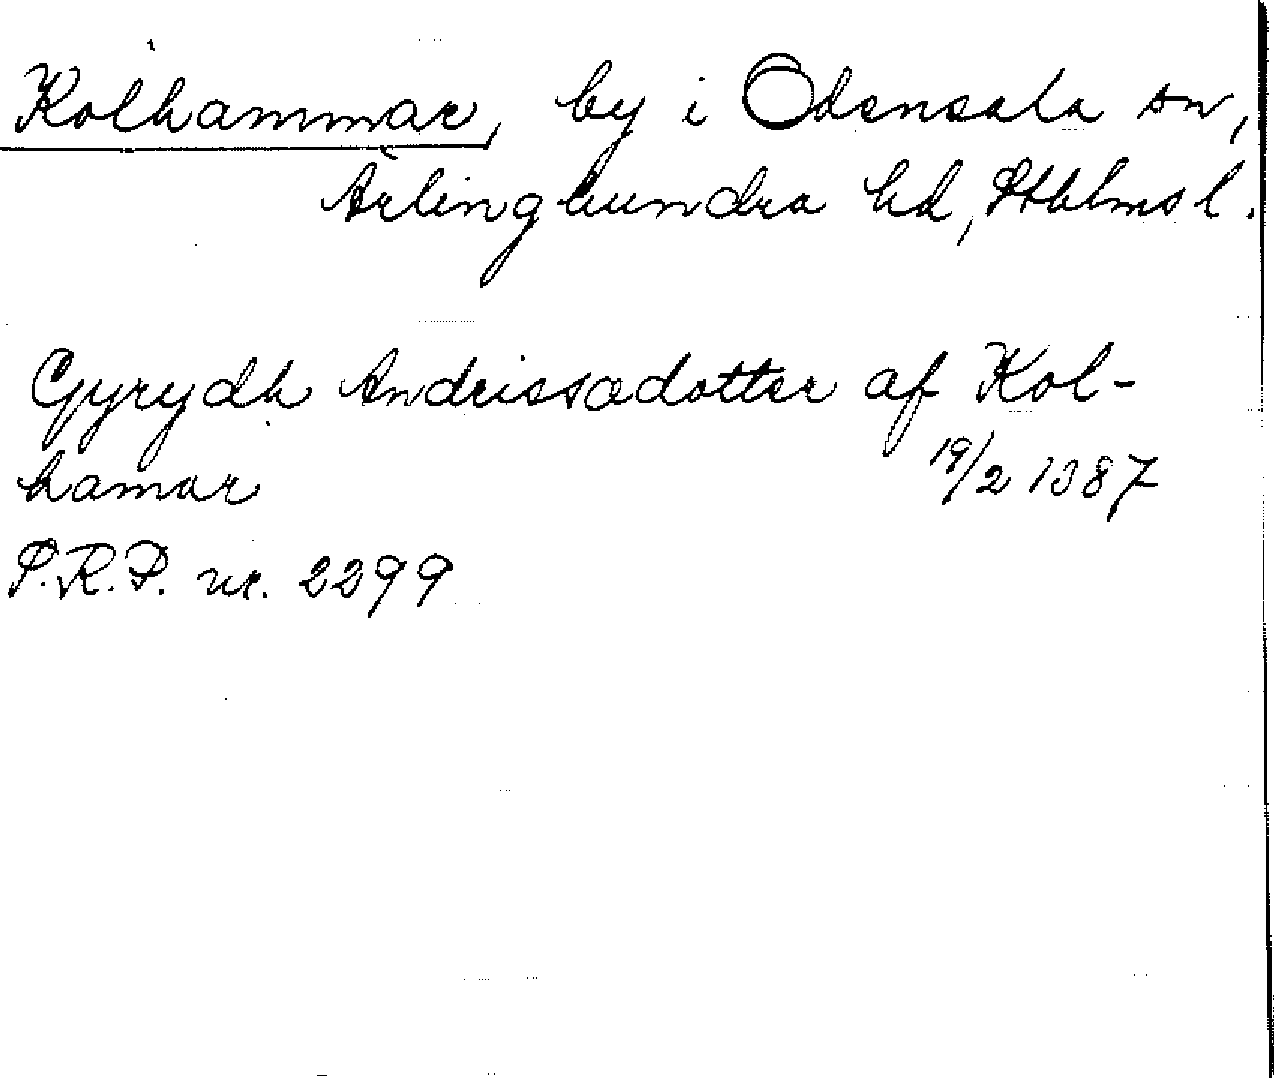 Kolhammar, by i Odensala sn,
Ärlinghundra hd, Sthlms l.
Gyrydh Andrissædotter af Kol-
hamar 19/2 1387
P.R.P. nr. 2299